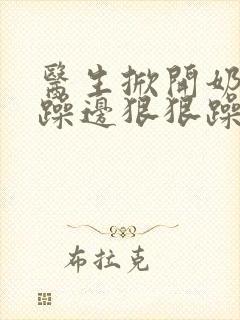 醫生掀開奶
躁邊狠狠躁
布拉克